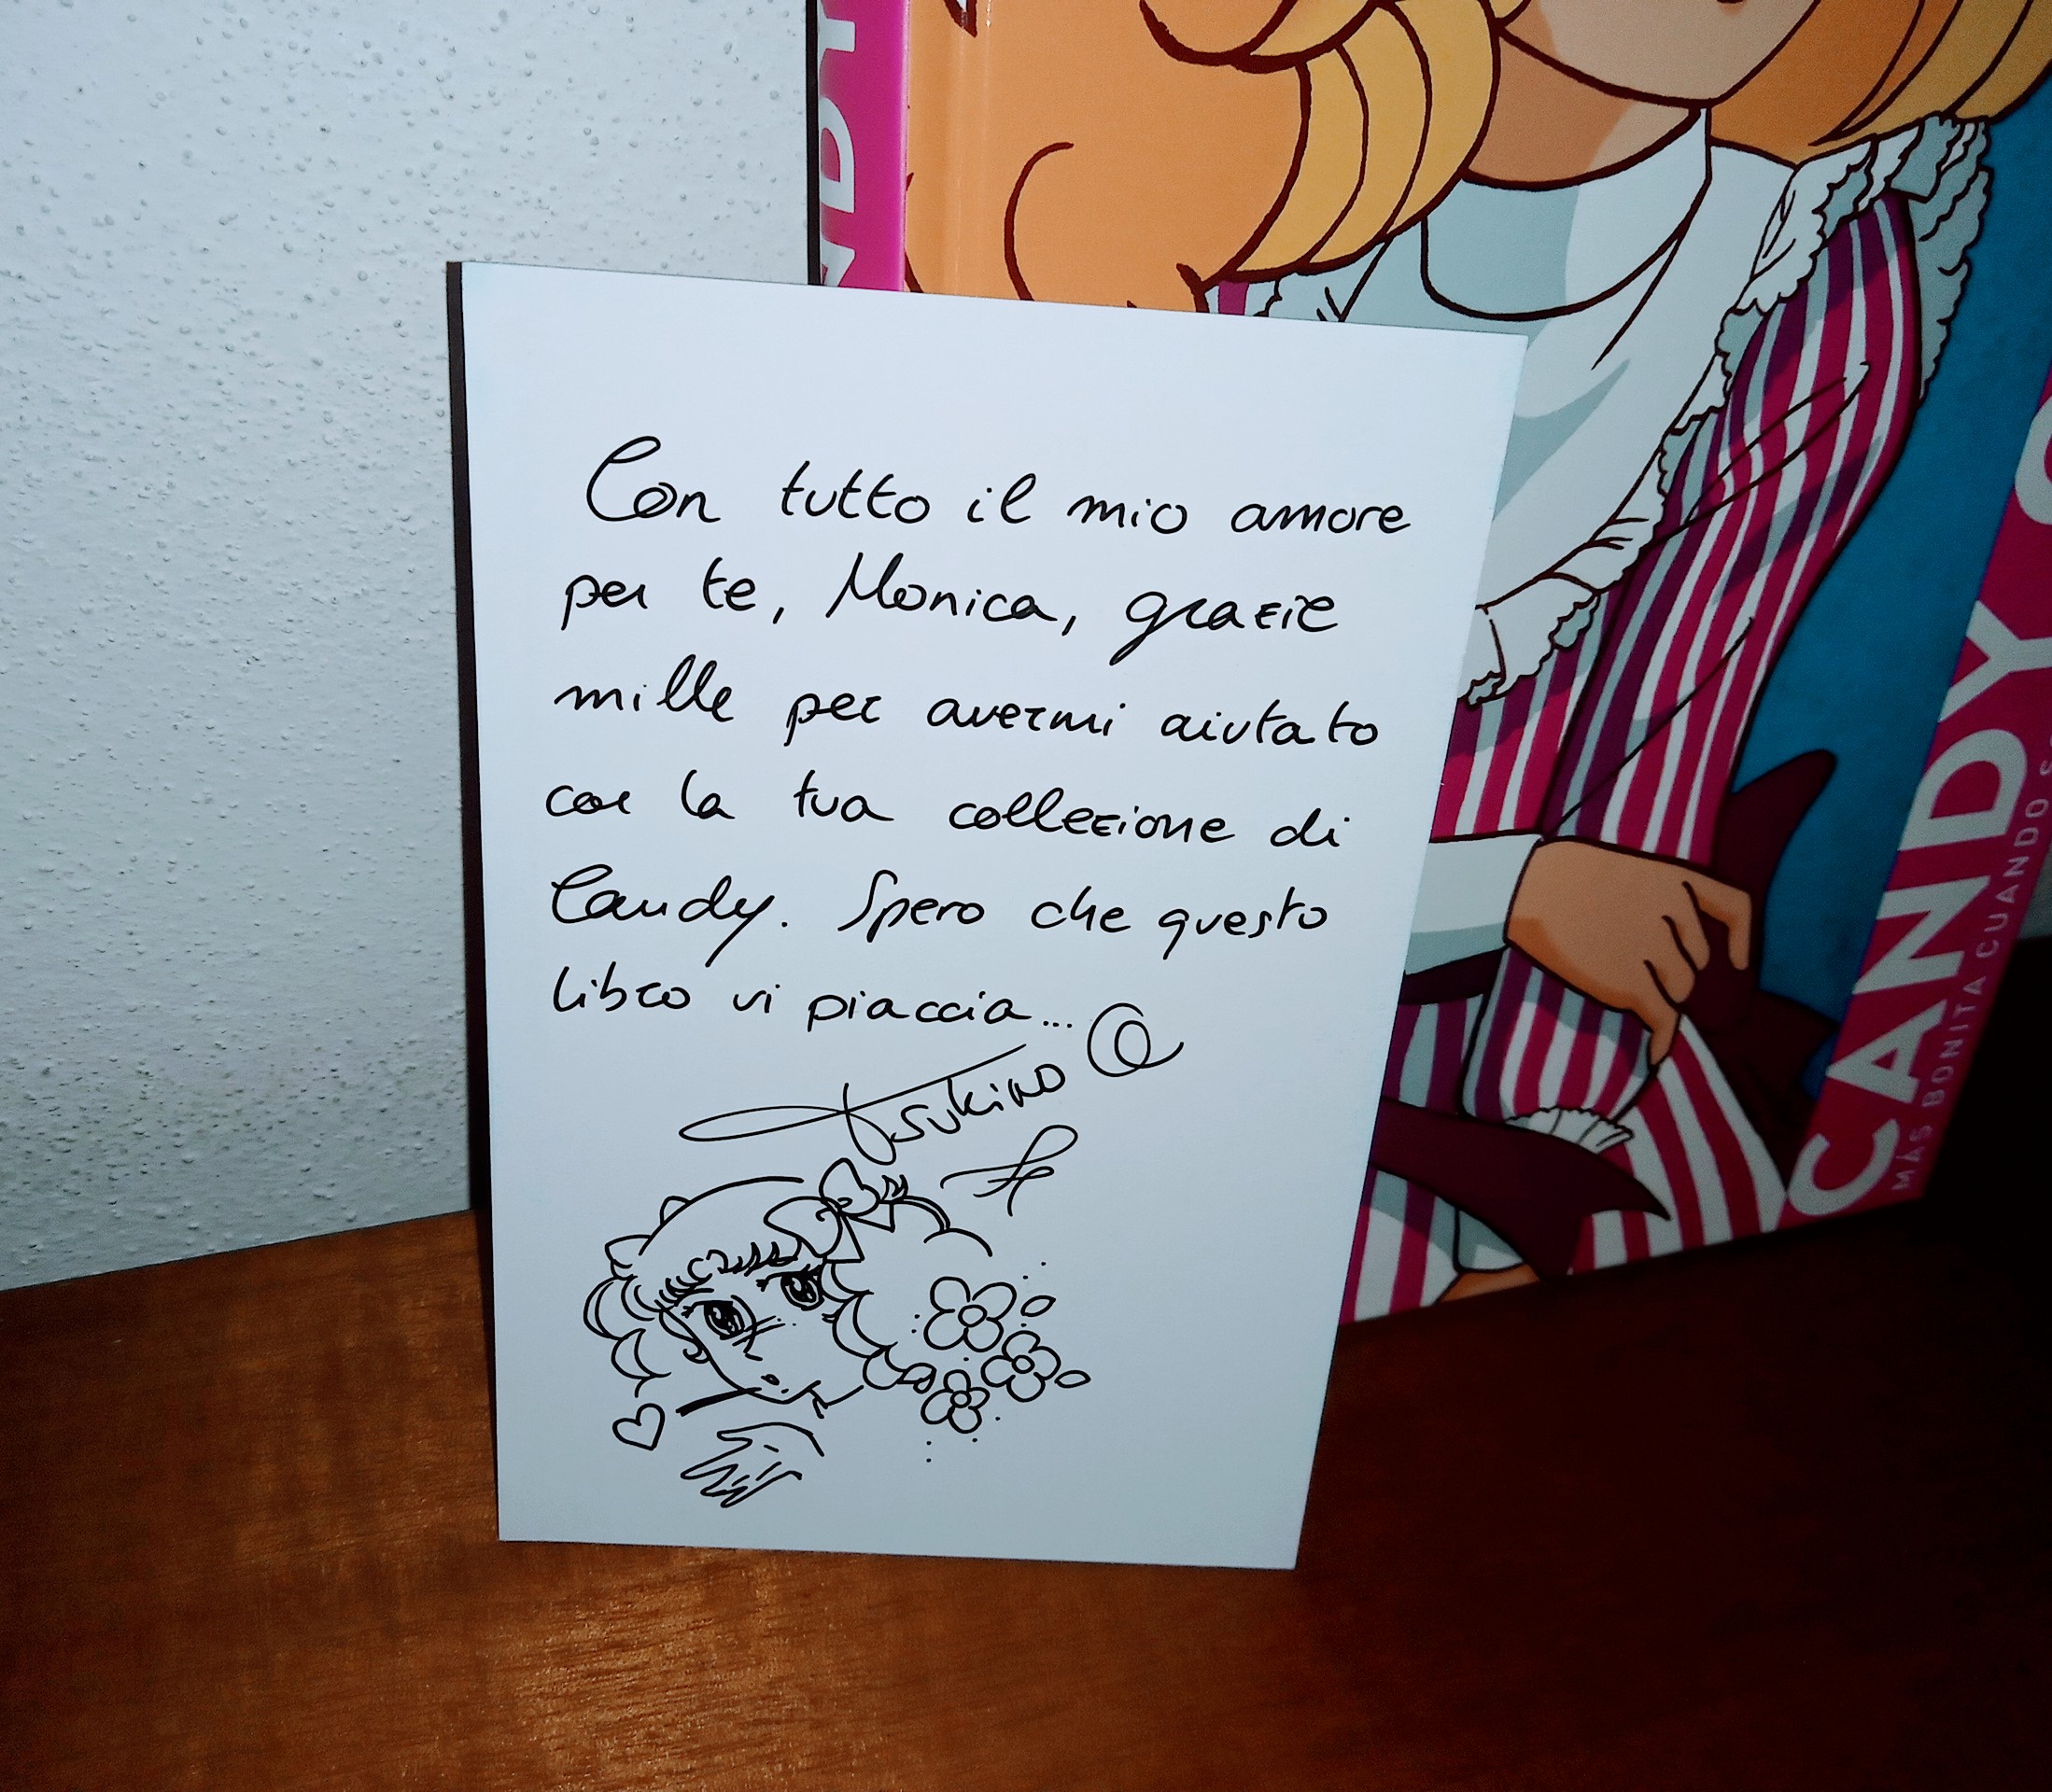 Con tutto il mio amore
per te, Monica, grazie
mille per avermi aiutato
con la tua collezione di
Candy. Spero che questo
libro vi piaccia...
Tsukino
NDY
CANDY
MÁS BONITA CUANDO